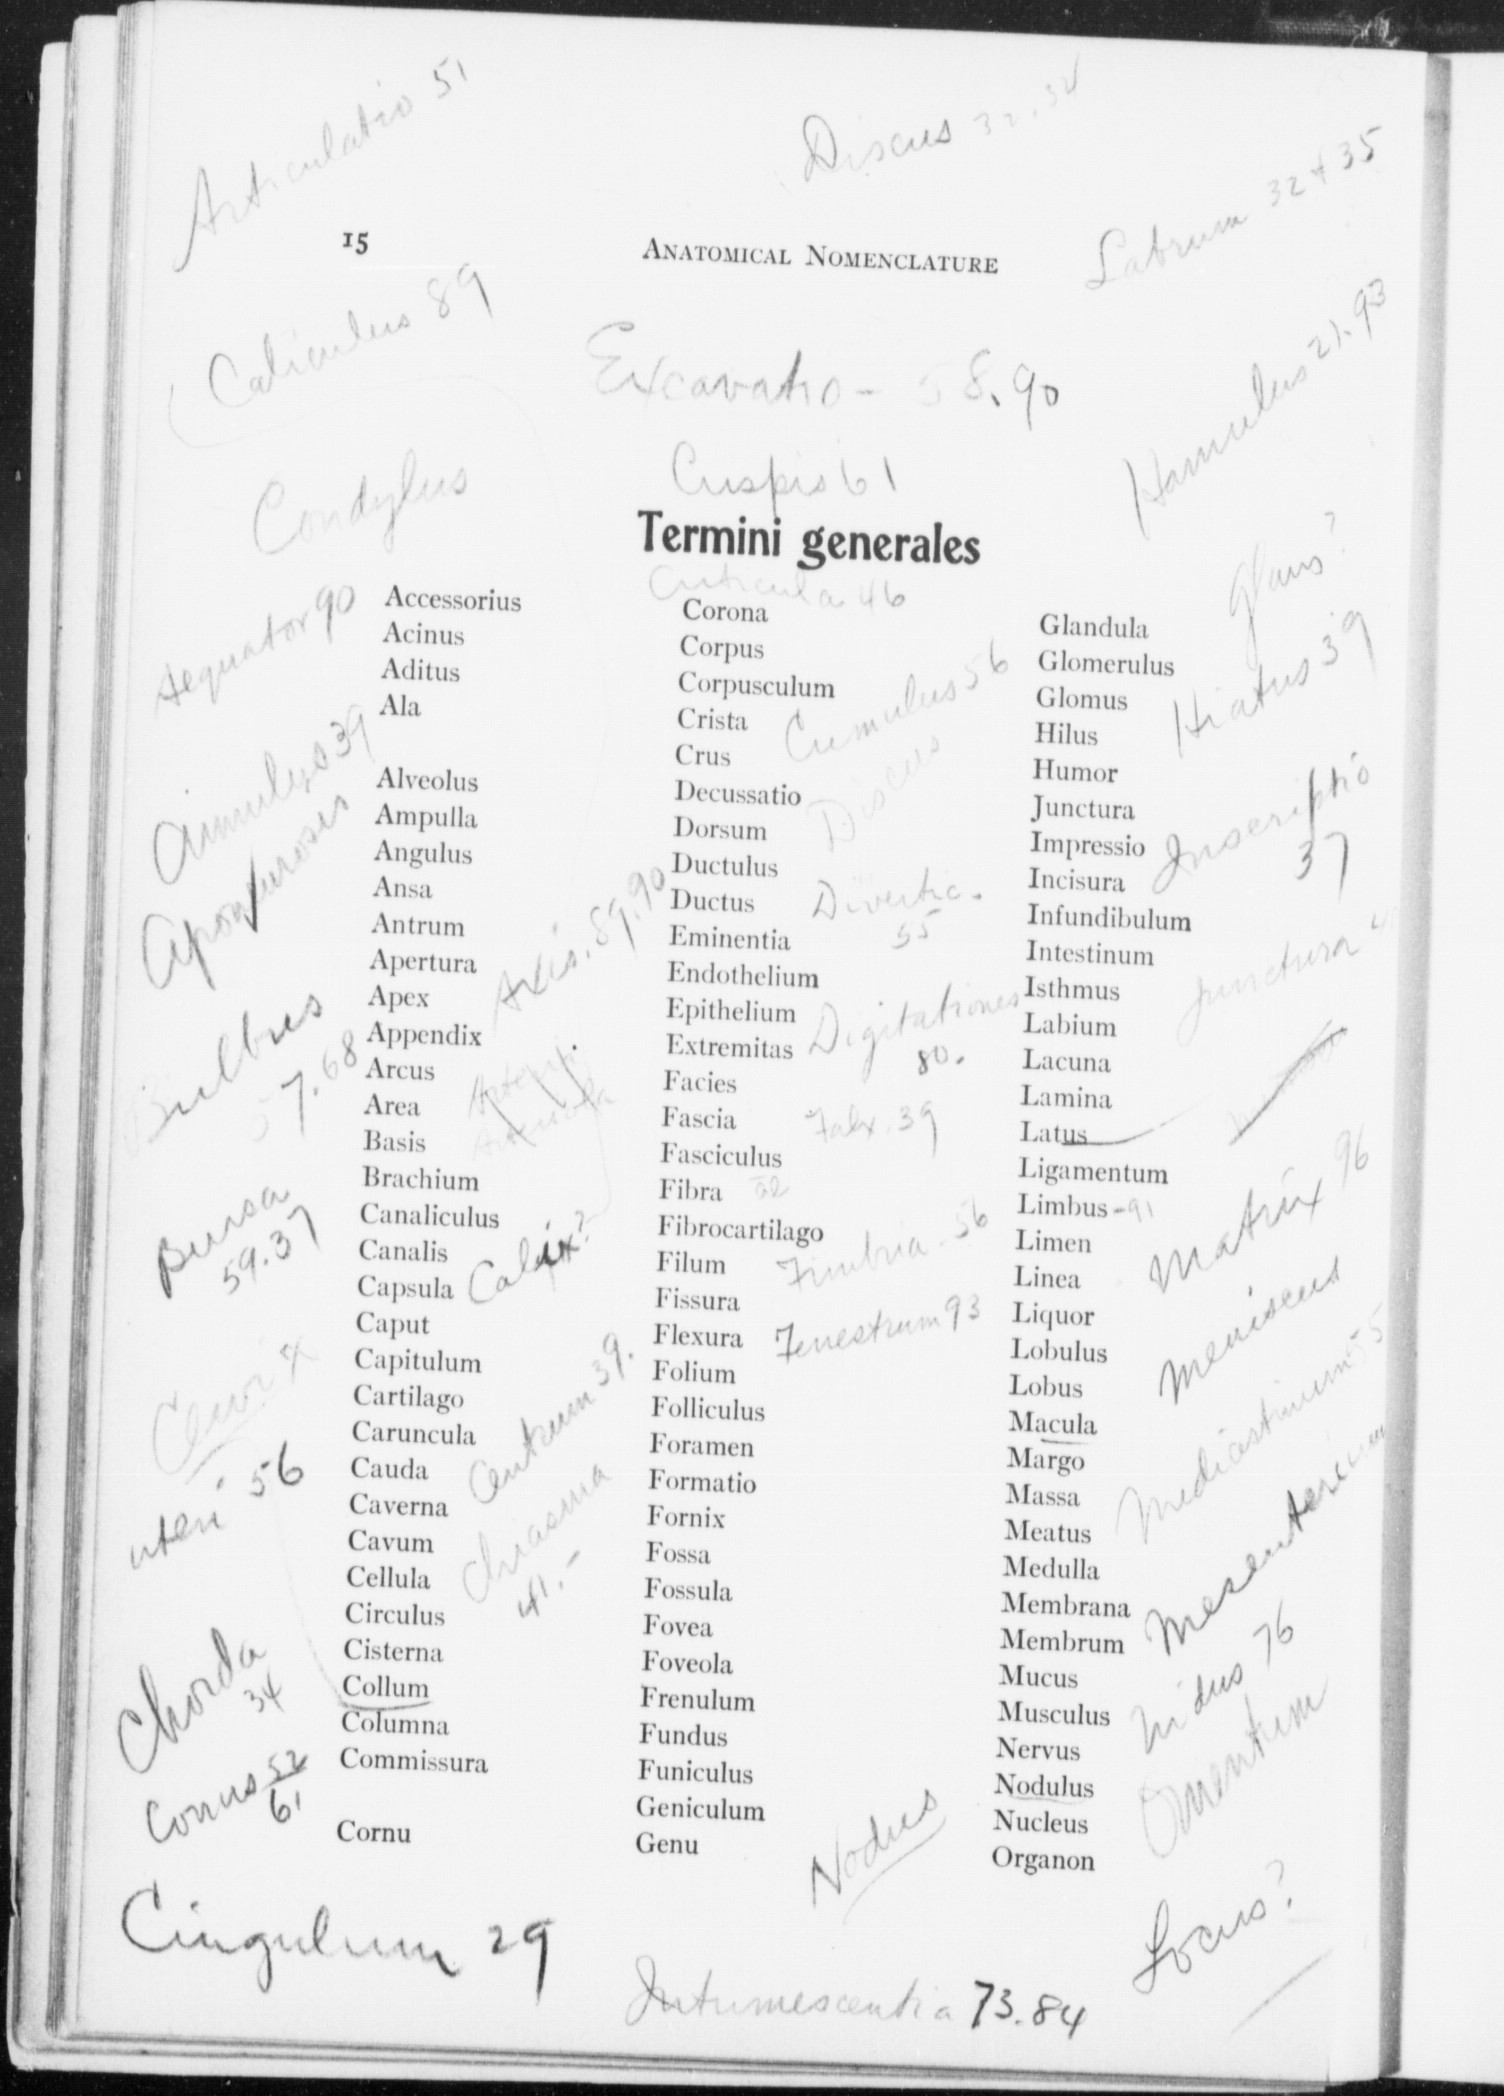 Articulatio 51
Discus 32.34
Labrum 32 + 35
15
ANATOMICAL NOMENCLATURE
Caliculus 89
Excavatio - 58.90
Hamulus 21.93
Condylus
Cuspis 61
Termini generales
Cuticula 46
Glans?
Aequator 90
Annulus 39
Aponeurosis
Bulbus
57.68
Bursa
59.37
Cervix
uteri 56
Chorda
34
Conus 52
61
Accessorius
Acinus
Aditus
Ala
Alveolus
Ampulla
Angulus
Ansa
Antrum
Apertura
Apex
Appendix
Arcus
Area
Basis
Brachium
Canaliculus
Canalis
Capsula
Caput
Capitulum
Cartilago
Caruncula
Cauda
Caverna
Cavum
Cellula
Circulus
Cisterna
Collum
Columna
Commissura
Cornu
Axis. 89.90
Calix?
Centrum 39.
Chiasma
41.-
Corona
Corpus
Corpusculum
Crista
Crus
Decussatio
Dorsum
Ductulus
Ductus
Eminentia
Endothelium
Epithelium
Extremitas
Facies
Fascia
Fasciculus
Fibra
Fibrocartilago
Filum
Fissura
Flexura
Folium
Folliculus
Foramen
Formatio
Fornix
Fossa
Fossula
Fovea
Foveola
Frenulum
Fundus
Funiculus
Geniculum
Genu
Cumulus 56
Discus
Divertic.
55
Digitationes
80.
Falx. 39
Fimbria - 56
Fenestrum 93
Nodus
Glandula
Glomerulus
Glomus
Hilus
Humor
Junctura
Impressio
Incisura
Infundibulum
Intestinum
Isthmus
Labium
Lacuna
Lamina
Latus
Ligamentum
Limbus - 91
Limen
Linea
Liquor
Lobulus
Lobus
Macula
Margo
Massa
Meatus
Medulla
Membrana
Membrum
Mucus
Musculus
Nervus
Nodulus
Nucleus
Organon
Hiatus 39
Inscriptio
37
Junctura
Matrix 96
Meniscus
Mediastinum 55
Mesenterium
Nidus 76
Omentum
Locus?
Cingulum 29
Intumescentia 73.84